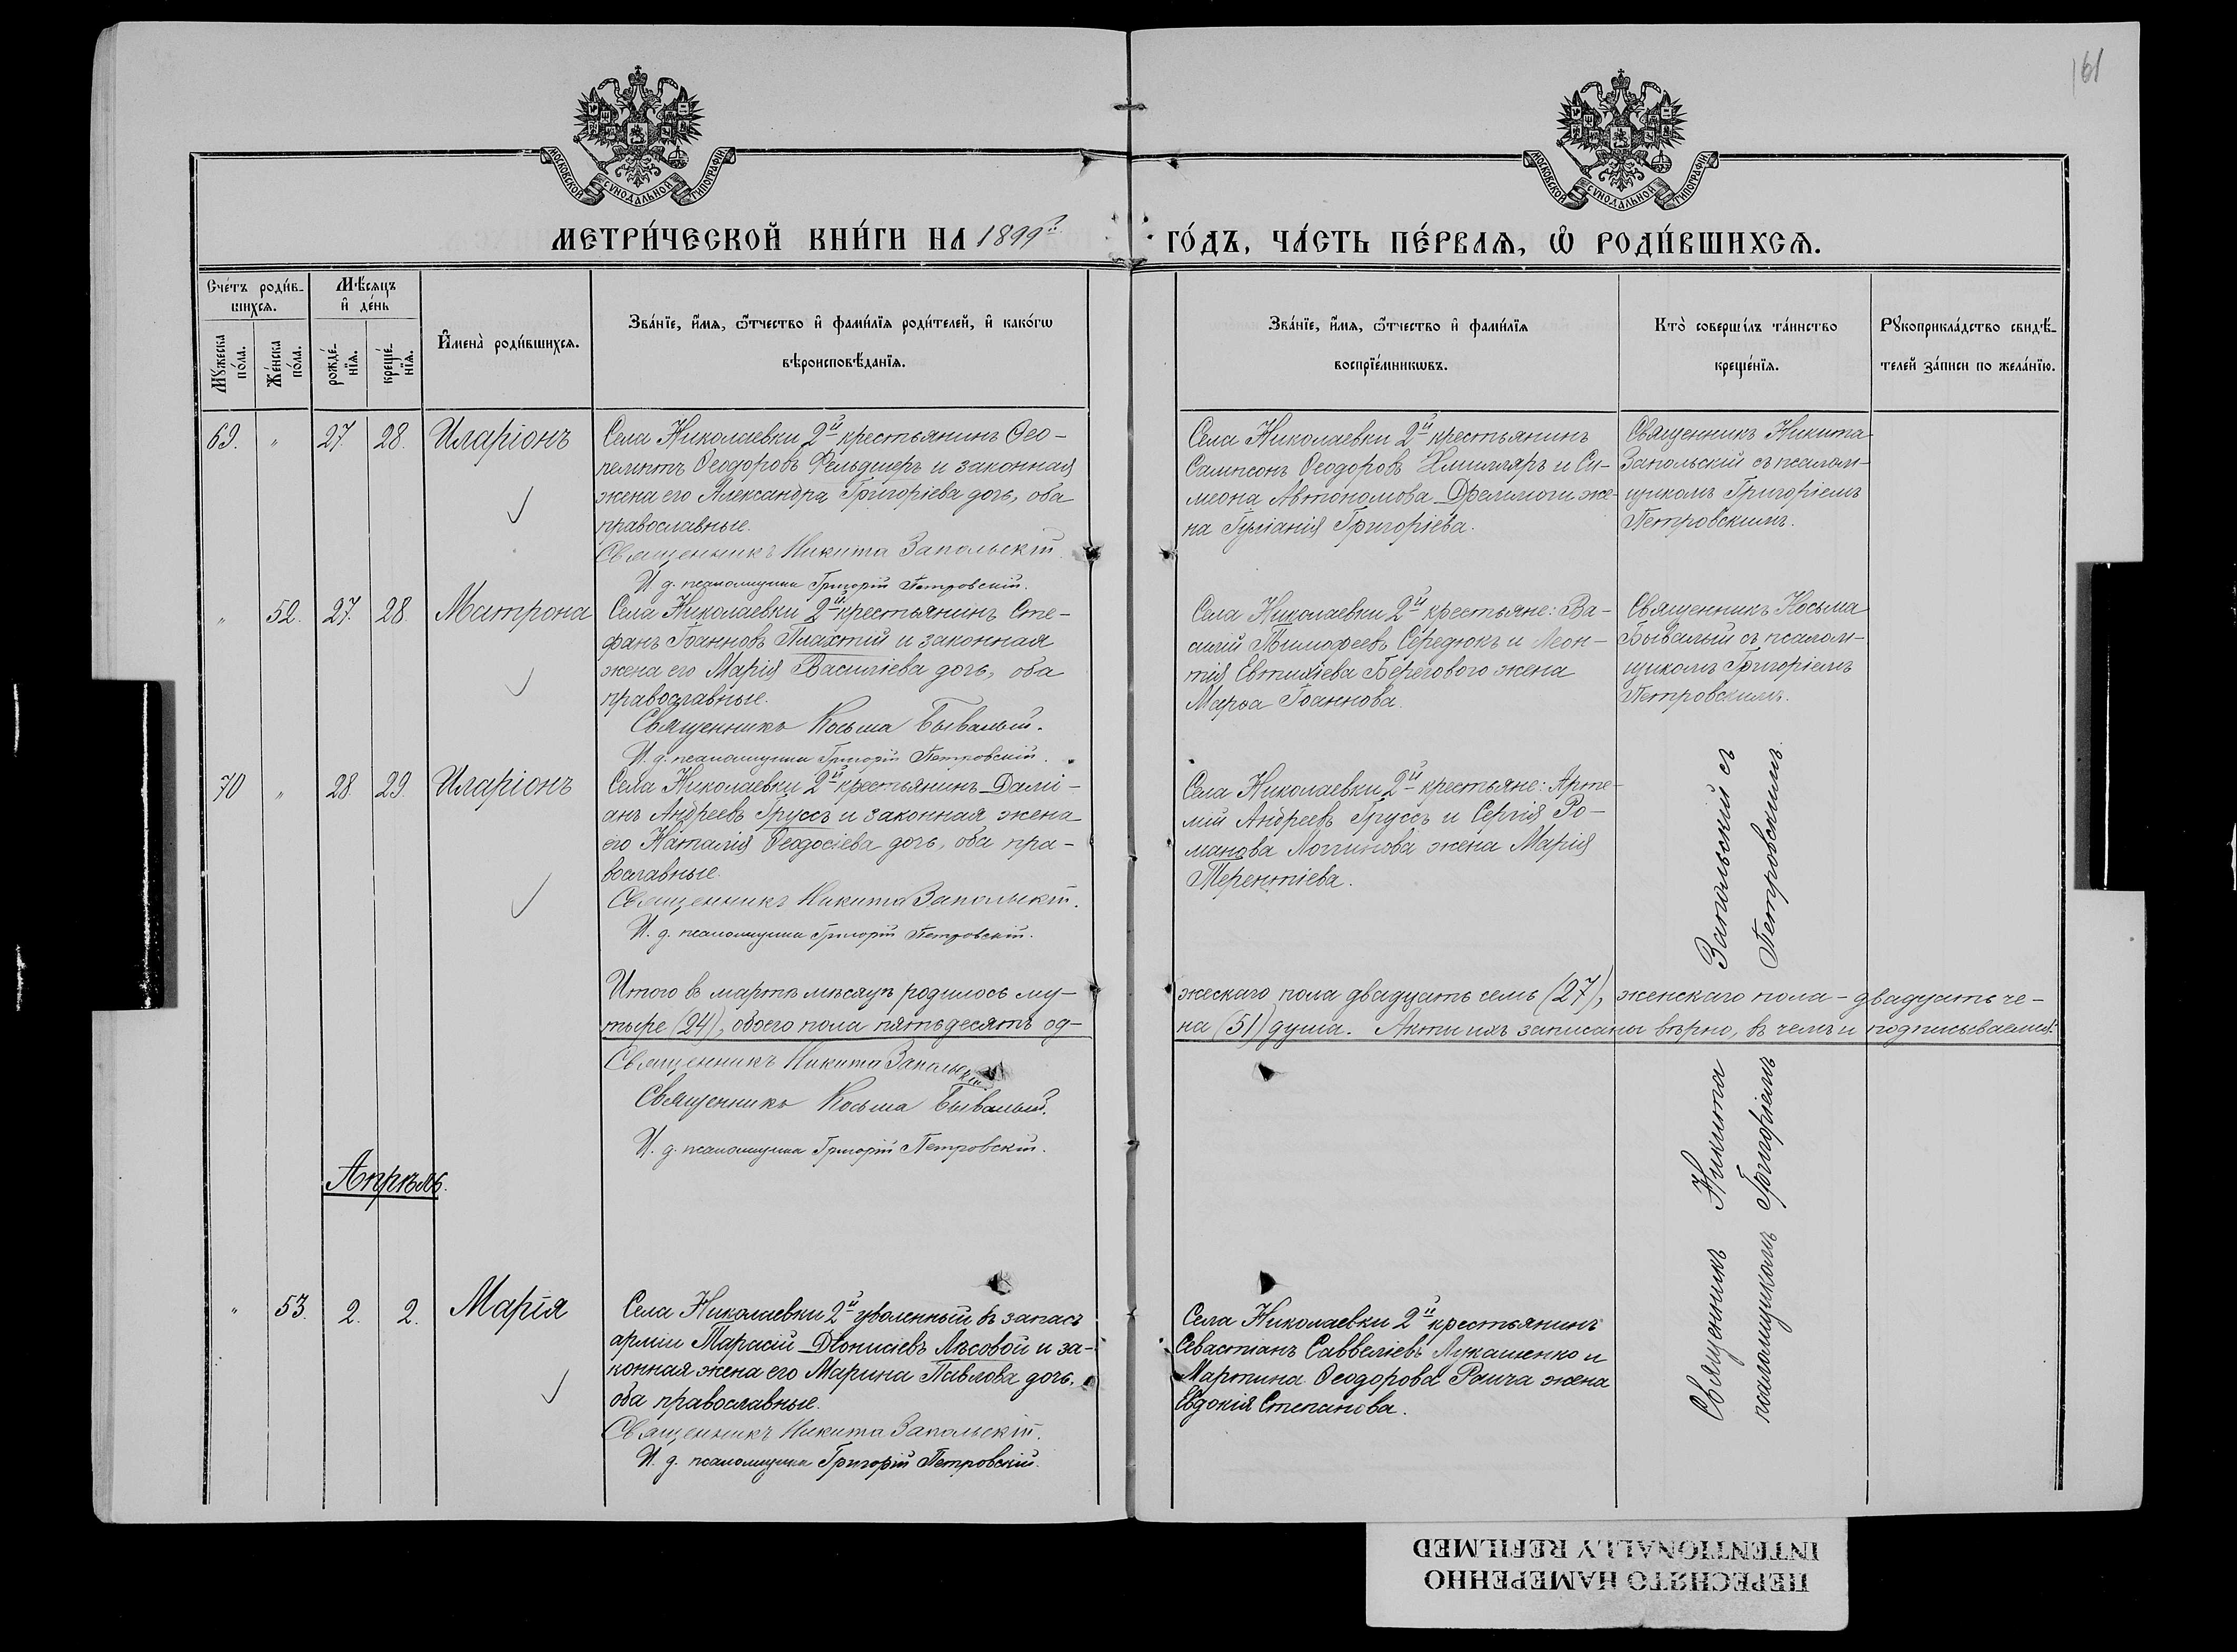 161
МОСКОВСКОЙ СѴНОДАЛЬНОЙ ТИПОГРАФІИ
МОСКОВСКОЙ СѴНОДАЛЬНОЙ ТИПОГРАФІИ
МЕТРИ́ЧЕСКОЙ КНИ́ГИ НА 1899й
ГО́ДЪ, ЧА́СТЬ ПЕ́РВАѦ, Ѡ҆ РОДИ́ВШИХСѦ.
Сче́тъ роди́в-
шихсѧ.
Мꙋ́жеска по́ла.
Же́нска по́ла.
Мѣ́сѧцъ и҆ де́нь
рожде́-
нїѧ.
креще́-
нїѧ.
И҆мена̀ роди́вшихсѧ.
Зва́нїе, и҆́мѧ, ѻ҆́тчество и҆ фами́лїѧ роди́телей, и҆ како́гѡ
вѣроисповѣ́данїѧ.
Зва́нїе, и҆́мѧ, ѻ҆́тчество и҆ фами́лїѧ
воспрїе́мникѡвъ.
Кто̀ соверши́лъ та́инство
креще́нїѧ.
Рꙋкоприкла́дство свидѣ́-
телей за́писи по жела́нїю.
69. " 27. 28. Иларіонъ
Села Николаевки 2й крестьянинъ Ѳео-
пемптъ Ѳеодоровъ Фельдшеръ и законная
жена его Александра Григоріева дочь, оба
православные.
Священникъ Никита Запольскій.
И. д. псаломщика Григорій Петровскій.
Села Николаевки 2й крестьянинъ
Сампсонъ Ѳеодоровъ и Си-
меона Автономова же-
на Іуліанія Григоріева.
Священникъ Никита
Запольскій съ псалом-
щикомъ Григоріемъ
Петровскимъ.
" 52. 27. 28. Матрона
Села Николаевки 2й крестьянинъ Сте-
фанъ Іоанновъ и законная
жена его Марія Василіева дочь, оба
православные.
Священникъ Косьма Бывалый.
И. д. псаломщика Григорій Петровскій.
Села Николаевки 2й крестьяне: Ва-
силій Тимоѳеевъ Середюкъ и Леон-
тія Евтихіева Берегового жена
Марѳа Іоаннова.
Священникъ Косьма
Бывалый съ псалом-
щикомъ Григоріемъ
Петровскимъ.
70 " 28 29. Иларіонъ
Села Николаевки 2й крестьянинъ Дамі
анъ Андреевъ Груссъ и законная жена
его Наталія Ѳеодосіева дочь, оба пра-
вославные.
Священникъ Никита Запольскій.
И. д. псаломщика Григорій Петровскій.
Села Николаевки 2й крестьяне: Арте-
мій Андреевъ Груссъ и Сергія Ро-
манова Логгинова жена Марія
Терентіева.
Итого въ мартѣ мѣсяцѣ родилось му-
жескаго пола двадцать семь (27), женскаго пола - двадцать че-
тыре (24), обоего пола пятьдесятъ од-
на (51) душа. Акты ихъ записаны вѣрно, въ чемъ и подписываемся:
Священникъ Никита Запольскій
Священникъ Косьма Бывалый.
И. д. псаломщика Григорій Петровскій.
Апрѣль.
" 53. 2. 2. Марія
Села Николаевки 2й уволенный въ запасъ
арміи Тарасій Діонисіевъ Лѣсовой и за-
конная жена его Марина Павлова дочь,
оба православные.
Священникъ Никита Запольскій.
И. д. псаломщика Григорій Петровскій.
Села Николаевки 2й крестьянинъ
Севастіанъ Савеліевъ Лукашенко и
Мартина Ѳеодорова жена
Евдокія Степанова.
Священникъ Никита Запольскій съ
псаломщикомъ Григоріемъ Петровскимъ.
ПЕРЕСНЯТО НАМЕРЕННО
INTENTIONALLY REFILMED